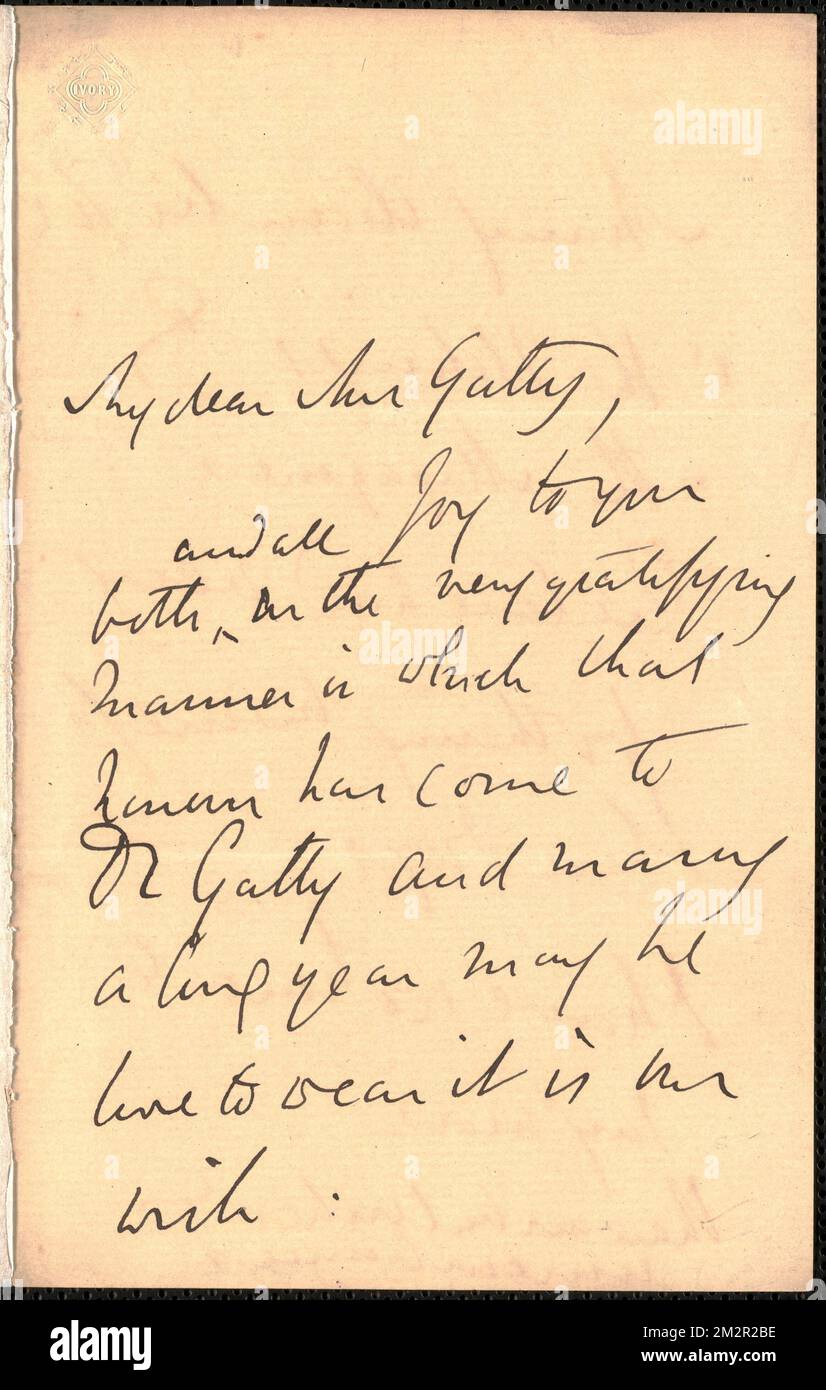 IVORY
My dear Mrs Gatty,
Joy to you
and all
both, ^ on the very gratifying
manner in which that
honour has come to
Dr Gatty and many
a long year may he
live to wear it is our
wish :
alamy
Image ID: 2M2R2BE
www.alamy.com